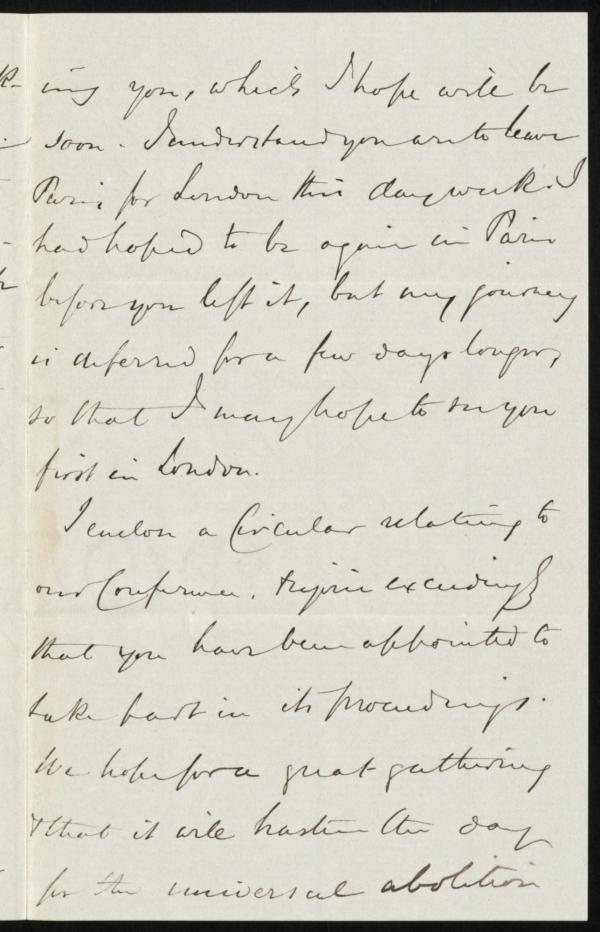 ing you, which I hope will be
soon. I understand you are to leave
Paris for London this day week. I
had hoped to be again in Paris
before you left it, but my journey
is deferred for a few days longer,
so that I may hope to see you
first in London.
I enclose a Circular relating to
our Conference. & rejoice exceedingly
that you have been appointed to
take part in its proceedings.
We hope for a great gathering
& that it will hasten the day
for the universal abolition